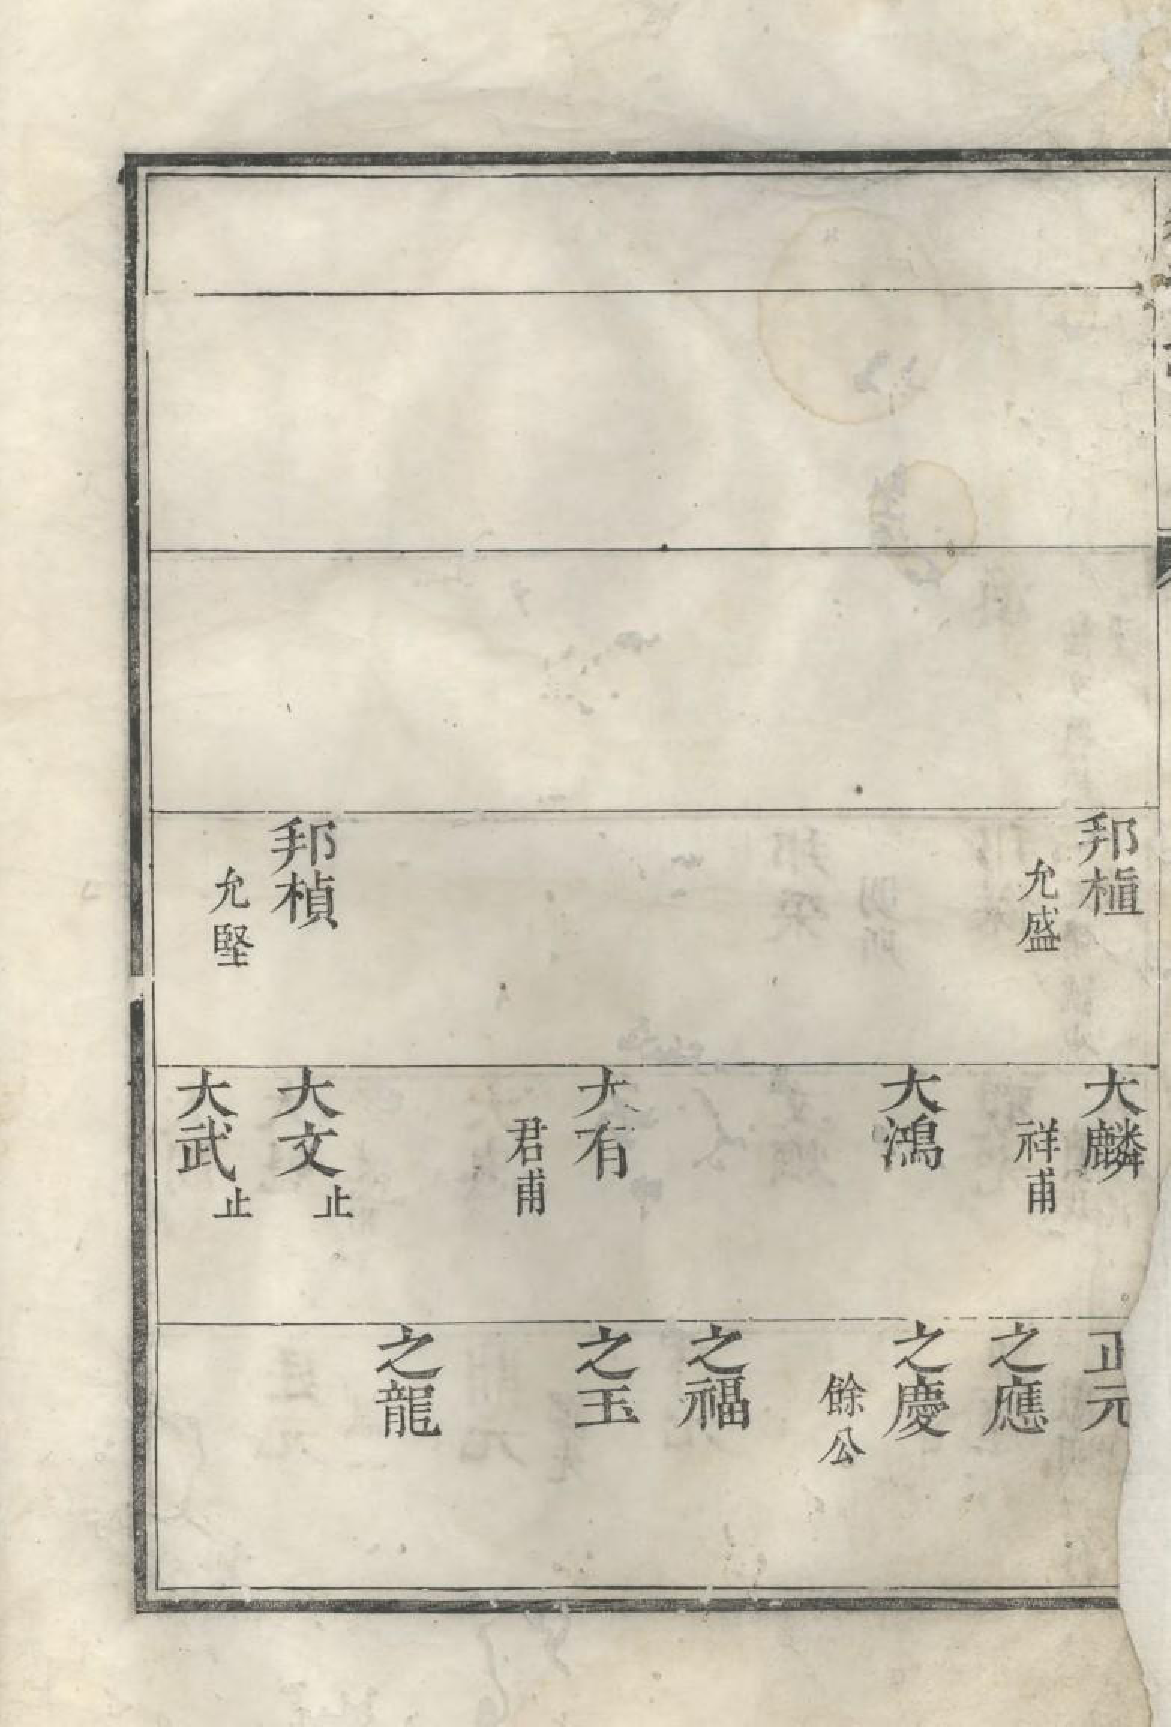 邦楦
允盛
邦楨
允堅
大麟
祥甫
大鴻
大有
君甫
大文
止
大武
止
正元
之應
之慶
餘公
之福
之玉
之龍